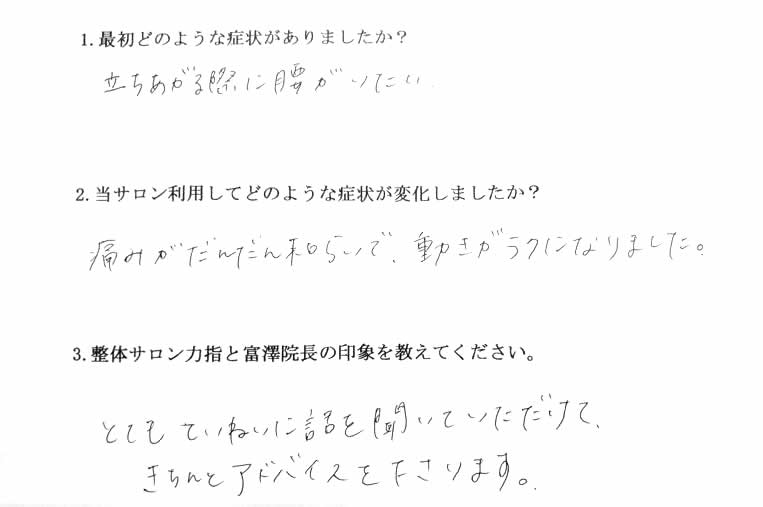 1.最初どのような症状がありましたか？
立ちあがる際に腰がいたい
2.当サロン利用してどのような症状が変化しましたか？
痛みがだんだん和らいで、動きがラクになりました。
3.整体サロン力指と富澤院長の印象を教えてください。
とてもていねいに話を聞いていただけて、
きちんとアドバイスを下さります。